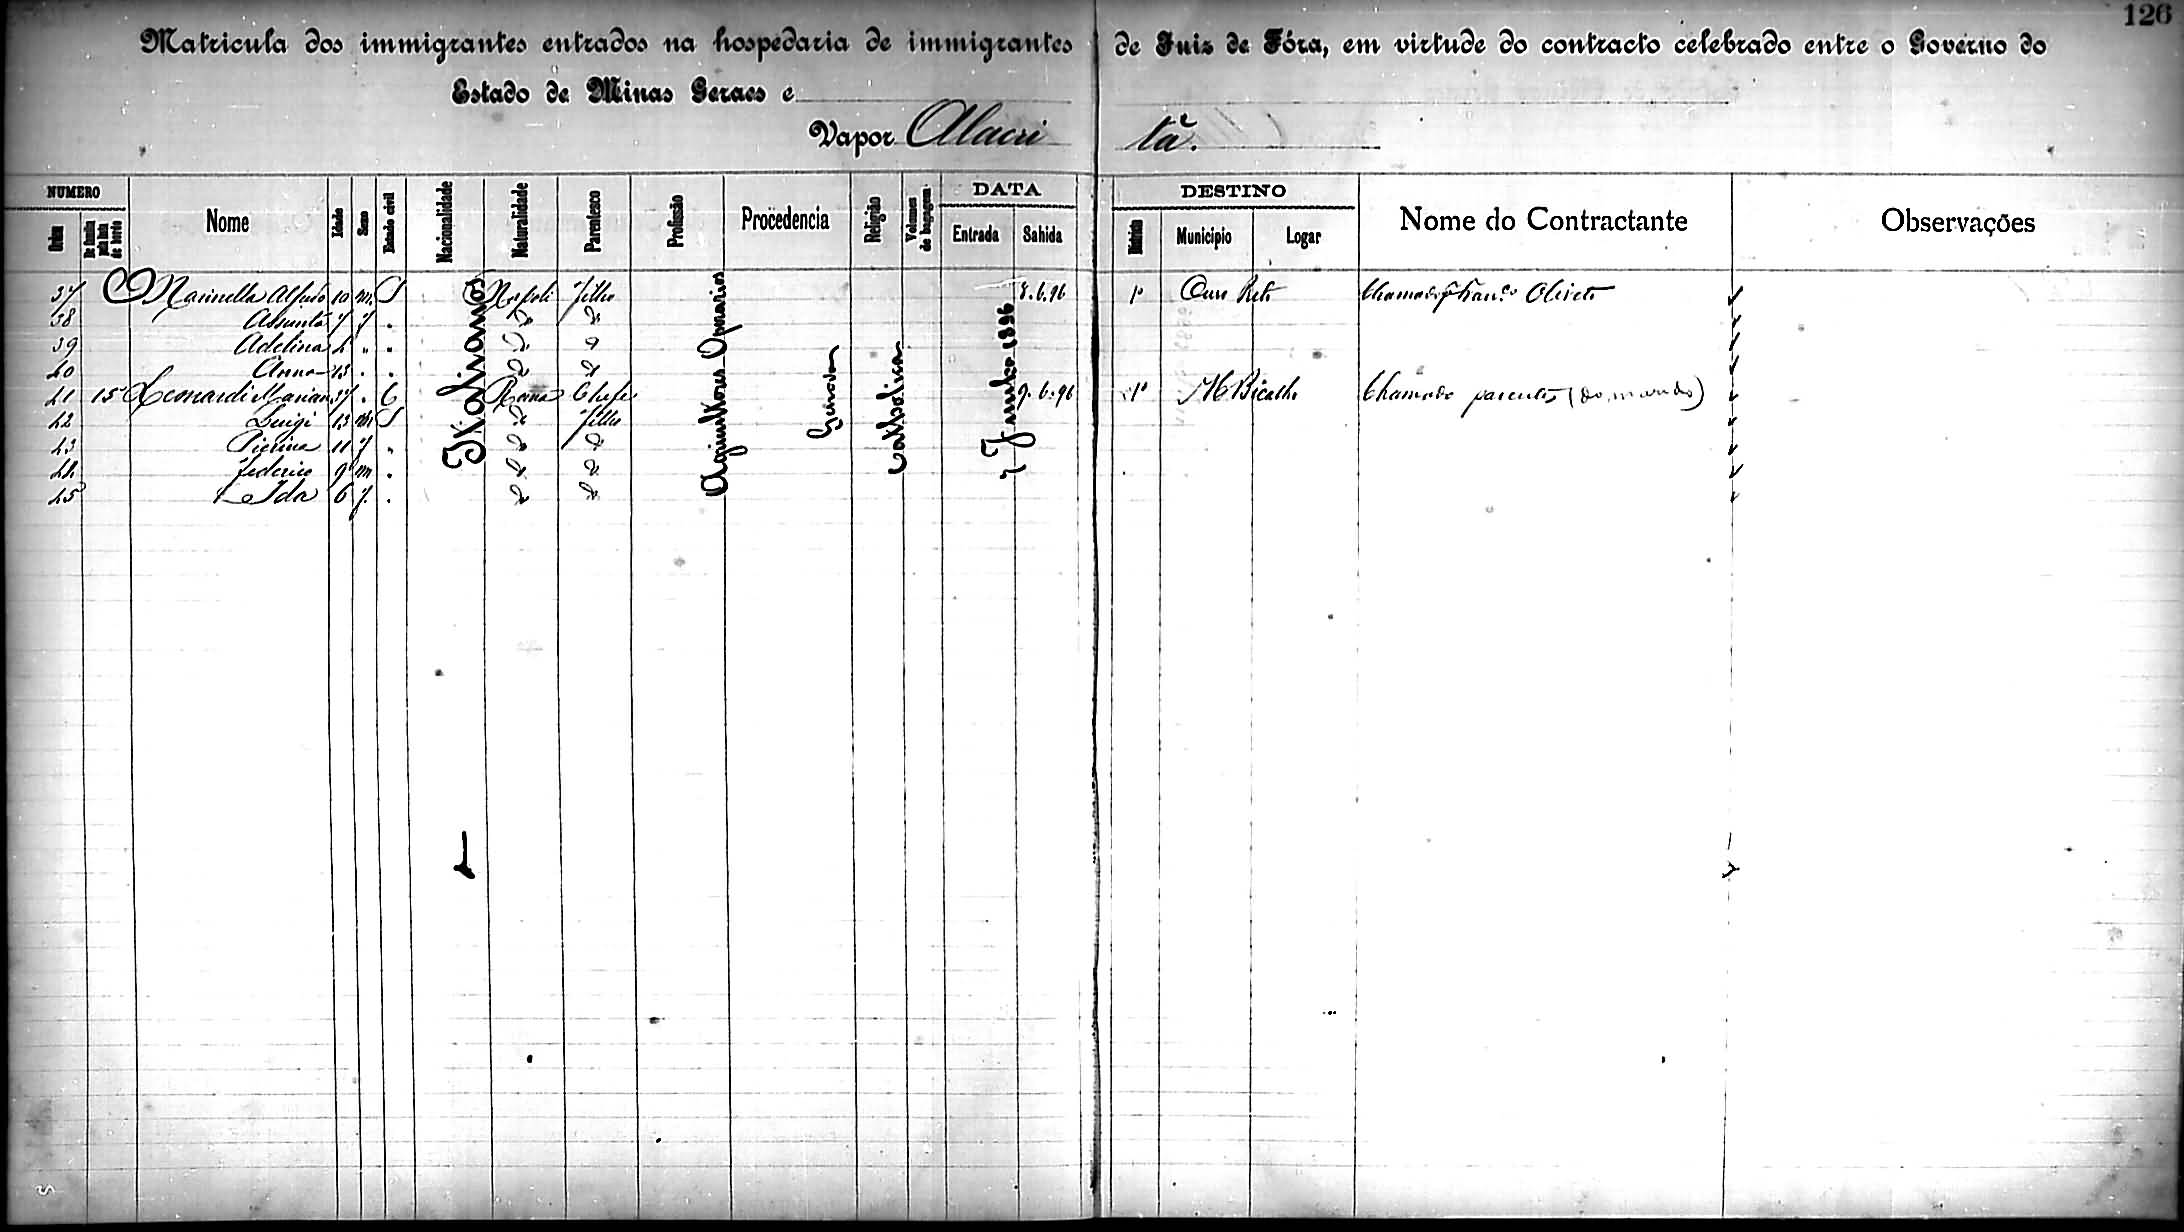 126
Matricula dos immigrantes entrados na hospedaria de immigrantes de Juiz de Fóra, em virtude do contracto celebrado entre o Governo do
Estado de Minas Geraes e
Vapor Alacri tà.
NUMERO DATA DESTINO
Ordem De familia pela lista de bordo Nome Idade Sexo Estado civil Nacionalidade Naturalidade Parentesco Profissão Procedencia Religião Volumes de bagagem Entrada Sahida Districto Municipio Logar Nome do Contractante Observações
37 Marinella Alfredo 10 m. S Napoli filho 8.6.96 1º Ouro Preto Chamado Franco Oliveto
38 Assunta 7 f " Do Do
39 Adelina 4 " " Do Do
40 Anna 13 " " Do Do
41 15 Leonardi Marian 37 " C Roma Chefe 9.6.96 1º Bicalho Chamado parentes (do marido)
42 Luigi 13 m S Do filho
43 Pierina 11 f " Do Do
44 Federico 9 m " Do Do
45 Ida 6 f. " Do Do
Italianos
Agricultores Operarios
Genova
Catholica
7 Junho 1896